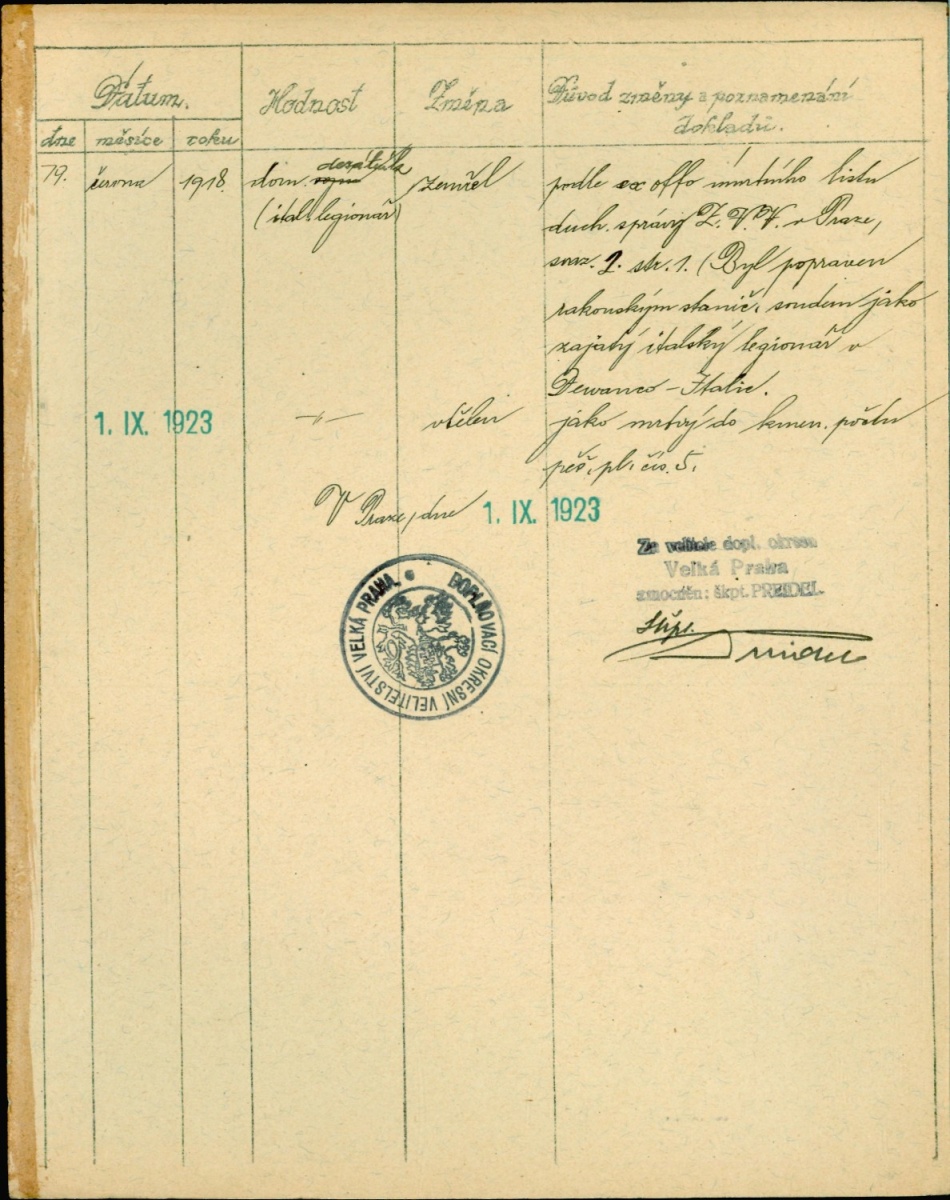 Dátum. Hodnost Změna Důvod změny a poznamenání
dokladů.
dne měsíce roku
19. června 1918. dom. desátník zemřel podle ex offo úmrtního listu
(ital. legionář) duch. správy Z. V. V. v Praze,
svaz. 2. str. 1. (Byl popraven
rakouským stanič. soudem jako
zajatý italský legionář v
Italie.
1. IX. 1923 -"- vtělen jako mrtvý do kmen. počtu
pěš. pl. čís. 5.
V Praze, dne 1. IX. 1923
Za velitele dopl. okresu
Velká Praha
zmocněn: škpt. PREIDEL
škpt.
DOPLŇOVACÍ OKRESNÍ VELITELSTVÍ VELKÁ PRAHA.